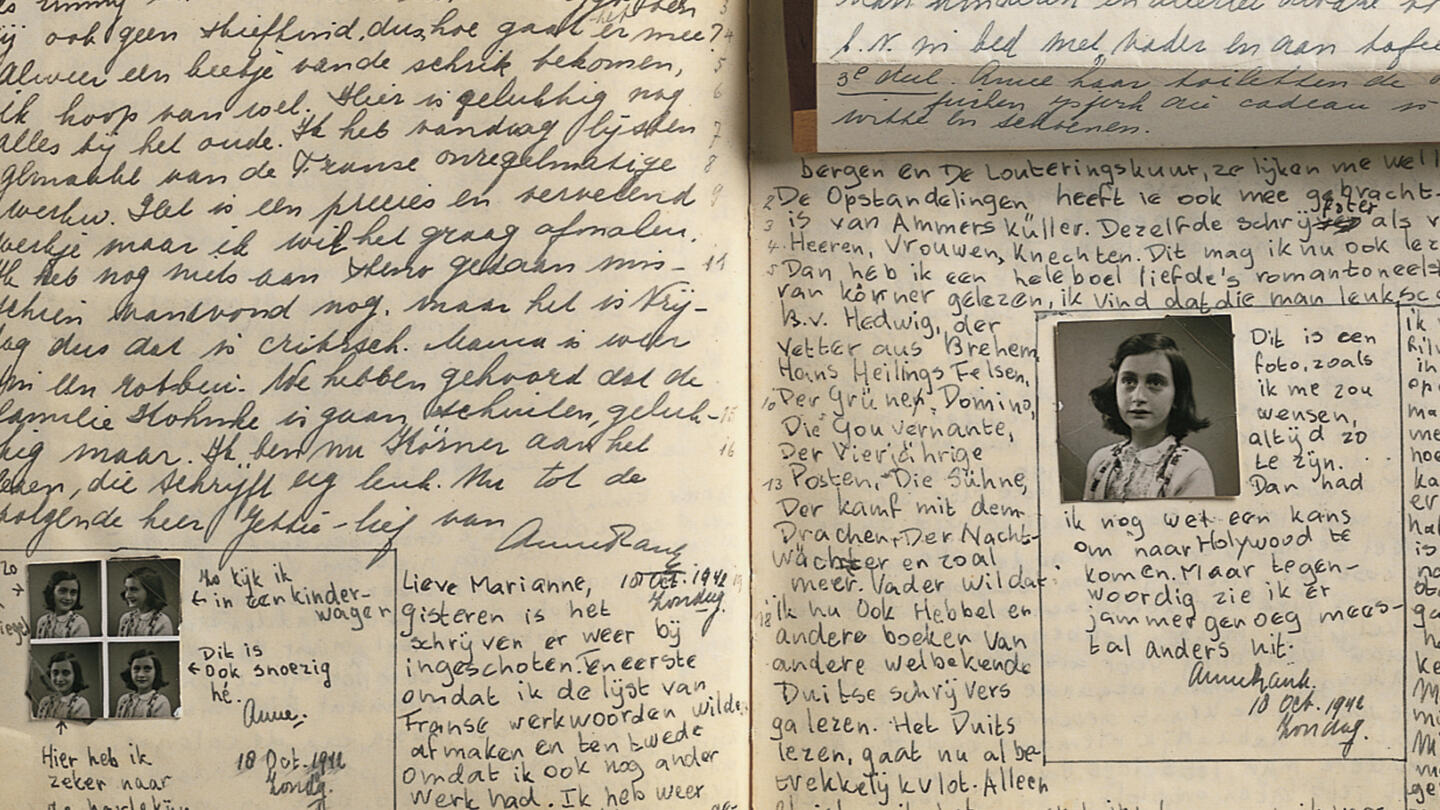 ij ook geen stiefkind, dus hoe gaat het er mee?
Alweer een beetje van de schrik bekomen,
ik hoop van wel. Hier is gelukkig nog
alles bij het oude. Ik heb vandaag lijsten
gemaakt van de Franse onregelmatige
werkw. Het is een precies en vervelend
werkje maar ik wil het graag afmaken.
Ik heb nog niets aan steno gedaan mis-
schien vanavond nog, maar het is Vrij-
dag dus dat is critisch. Mama is weer
in een rotbui. We hebben gehoord dat de
familie Kohnke is gaan schuilen, geluk-
kig maar. Ik ben nu Körner aan het
lezen, die schrijft erg leuk. Nu tot de
volgende keer Jettie-lief van
Anne Frank
Zo kijk ik
in een kinder-
wager
Dit is
ook snoezig
hè.
Anne.
Hier heb ik
zeker naar
18 Oct. 1942
Zondag.
Lieve Marianne,
10 Oct. 1942
Zondag.
gisteren is het
schrijven er weer bij
ingeschoten. Teneerste
omdat ik de lijst van
Franse werkwoorden wilde
afmaken en ten twede
omdat ik ook nog ander
werk had. Ik heb weer
L.N. in bed met Vader en aan tafel
3e deel. Anne haar toiletten de
witte en schoenen.
bergen en De Louteringskuur, ze lijken me wel l
2 De Opstandelingen heeft ie ook mee gebracht.
3 is van Ammers küller. Dezelfde schrijfster als v
4 Heeren, Vrouwen, Knechten. Dit mag ik nu ook lez
5 Dan heb ik een heleboel liefde's romantoneelst
van körner gelezen, ik vind dat die man leuk sc
B.v. Hedwig, der
Vetter aus Brehem,
Hans Heilings Felsen,
10 Der Grüner Domino,
Die Gouvernante,
Der Vierjährige
13 Posten, Die Sühne,
Der kamf mit dem
Drachen, Der Nacht-
wächter en zoal
meer. Vader wil dat
18 ik nu ook Hebbel en
andere boeken van
andere welbekende
Duitse schrijvers
ga lezen. Het Duits
lezen, gaat nu al be-
trekkelijk vlot. Alleen
Dit is een
foto, zoals
ik me zou
wensen,
altijd zo
te zijn.
Dan had
ik nog wel een kans
om naar Holywood te
komen. Maar tegen-
woordig zie ik er
jammer genoeg mees-
tal anders uit.
Annefrank.
10 Oct. 1942
Zondag.